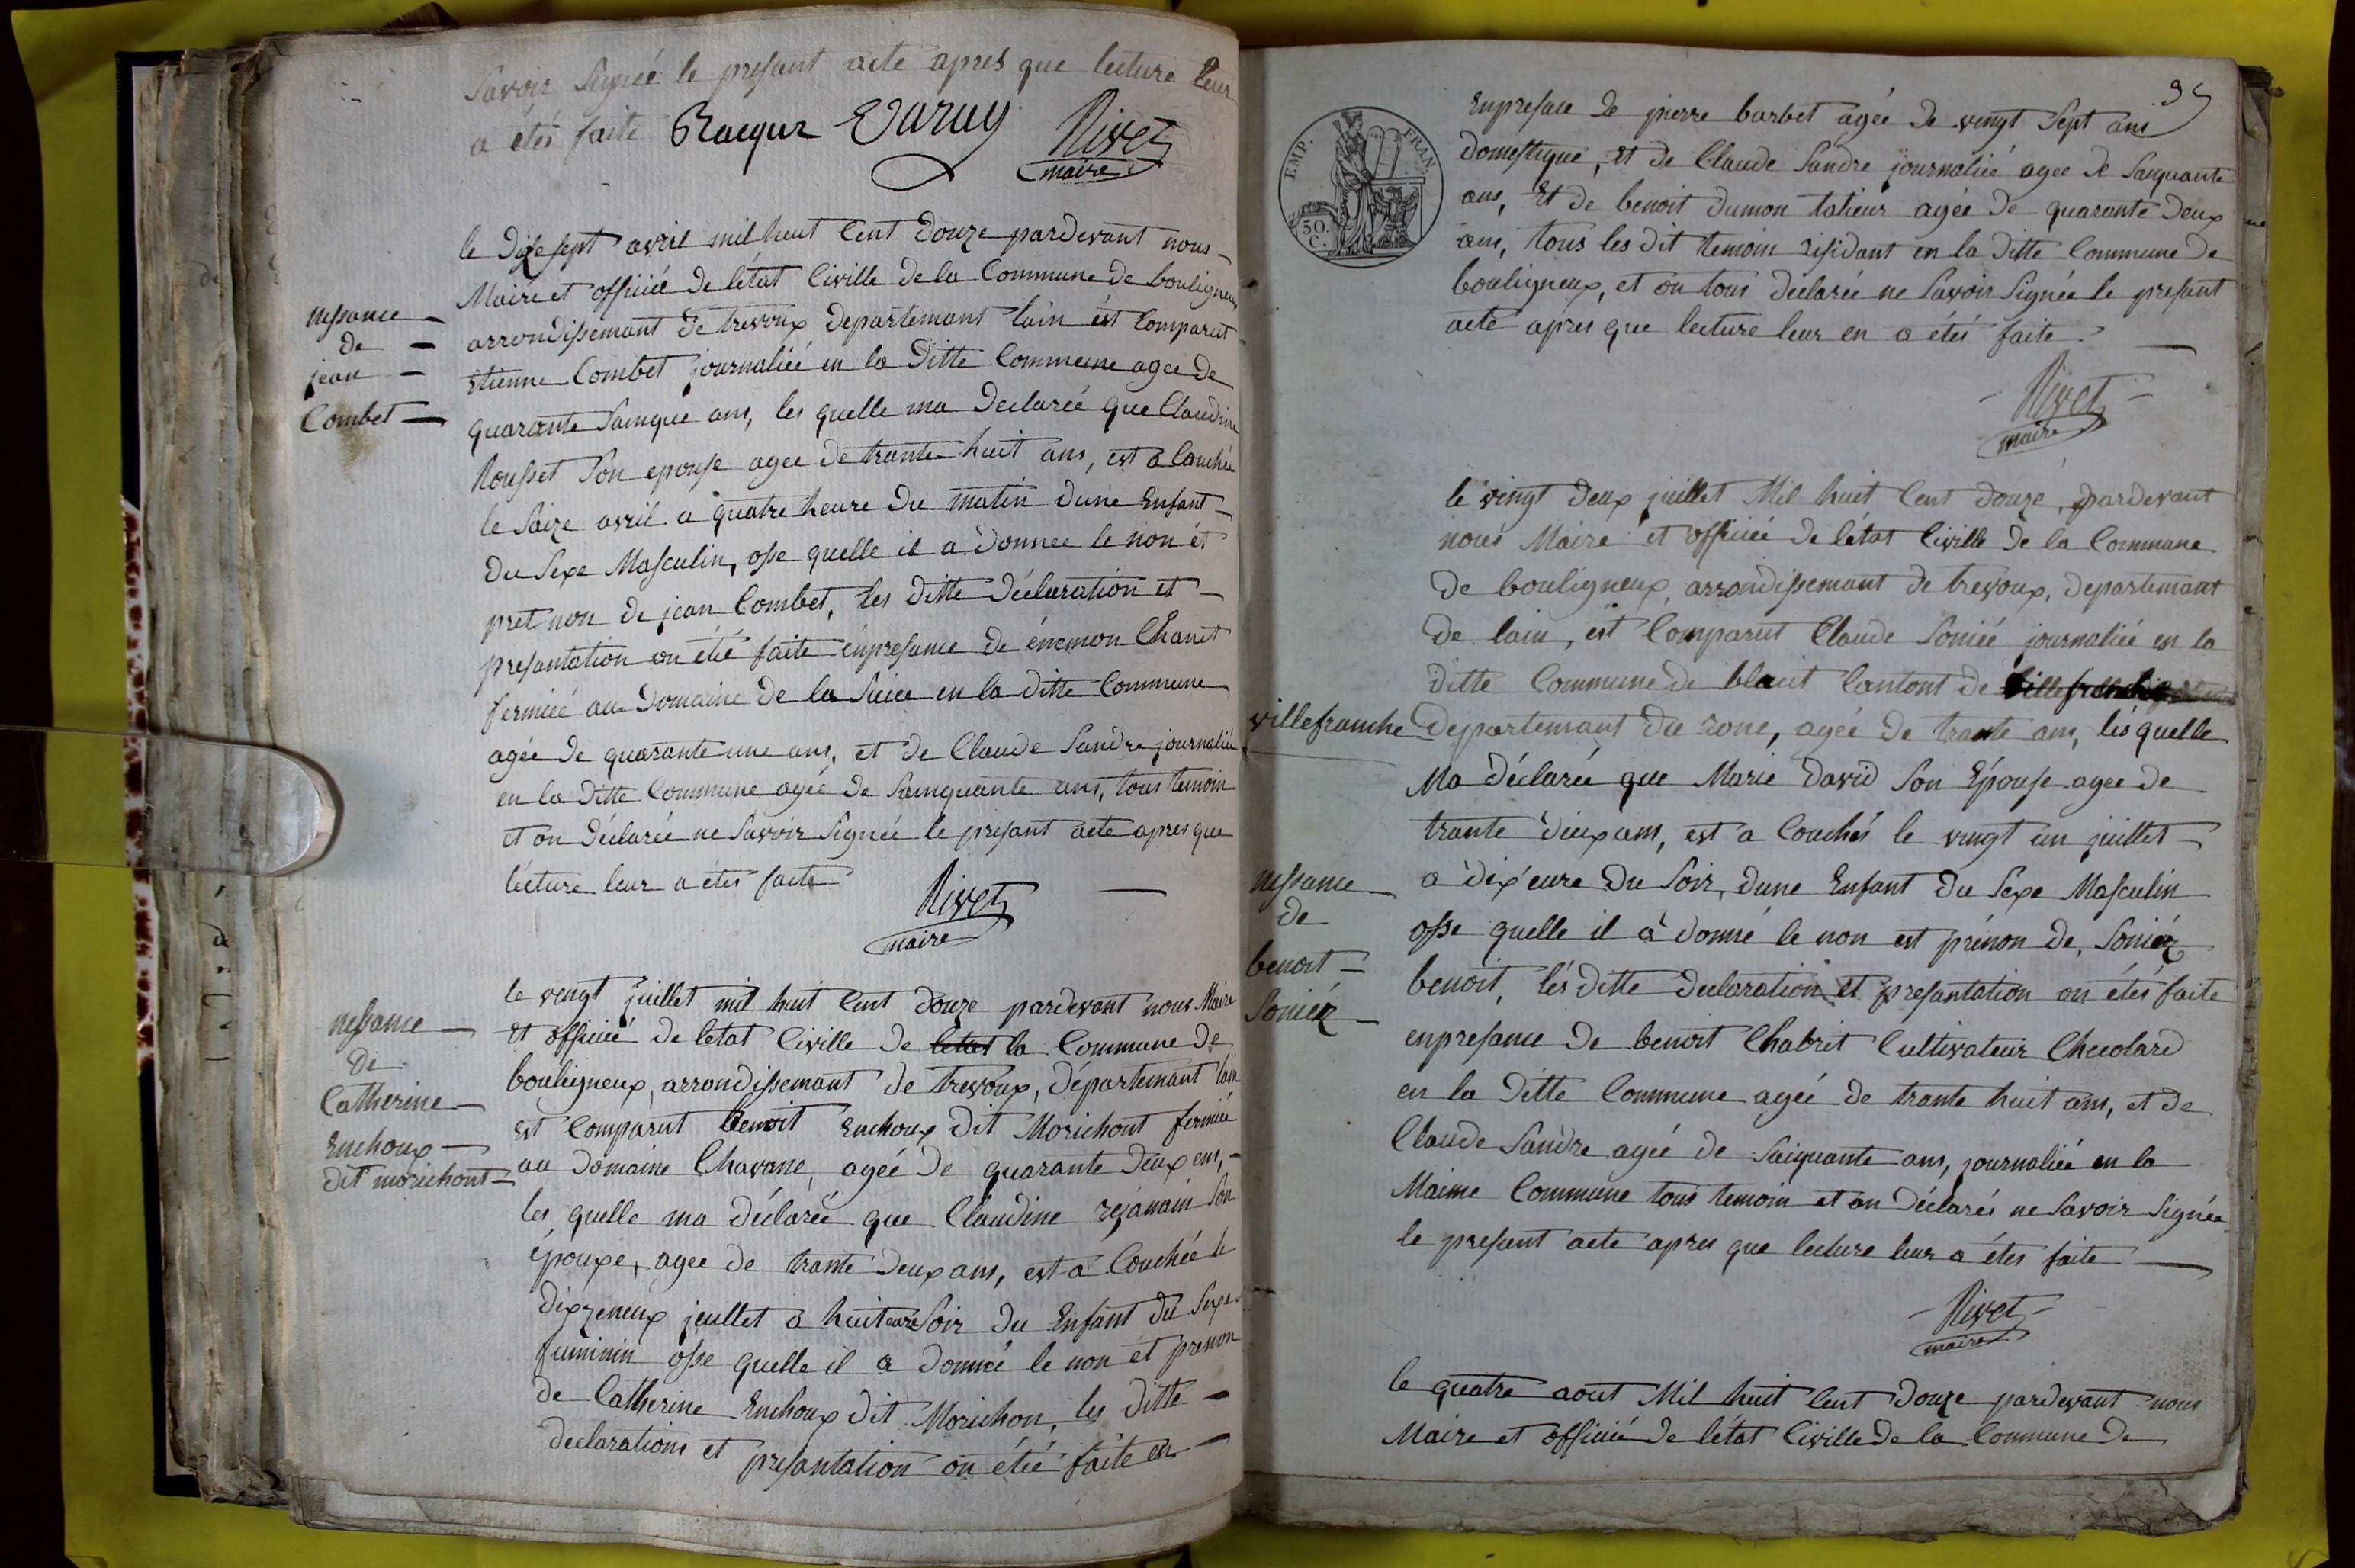 Savoir Signéé le presant acte apres que lecture leur
a étés faite Racyur Varuy Rivet
maire
le dizesept avril mil huit Cent douze pardevant nous
Maire et officiéé de létat Civille de la Commune de bouligneux
nessance
de
jean
Combet
arrondissemant de trevoux departemant lain est Comparut
etienne Combet journaliéé en la ditte Commune agee de
quarante Sainque ans, les quelle ma declaréé que Claudine
Rousset Son epouse agee de trante huit ans, est a Couchée
le Saize avril a quatre heure du matin dune Enfant
du Sexe Masculin, osse quelle il a donnee le non et
pret non de jean Combet, les ditte déclaration et
presantation on étéé faite enpresance de énemon Chanet
fermiéé au domaine de la en la ditte Commune
agée de quarante une ans, et de Claude Sandre journaliéé
en la ditte Commune agéé de Sainquante ans, tous temoin
et on déclaréé ne Savoir Signéé le presant acte apres que
lécture leur a étés faite
Rivet
maire
nessance
de
Catherine
Enchoux
dit morichont
le vengt juillet mil huit Cent douze pardevant nous Maire
et officiéé de letat Civille de letat la Commune de
bouligneux, arrondissemant de trevoux, département lain
est Comparut benoit Enchoux dit Morichont fermiéé
au domaine Chavane, agéé de quarante deux ens,
les quelle ma déclaréé que Claudine rejanain Son
épouxe, agee de trante deux ans, est a Couchéé le
dixzeneux jeullet a huit eure Soir du Enfant du Sexe
fuminin osse quelle il a donnéé le non et prenon
de Catherine Enchoux dit Morichon, les ditte
declarations et presantation on étéé faite en
95
EMP. FRAN.
50.
C.
Enpresace de pierre barbet agée de vingt Sept ans
domestique, et de Claude Sandre journaliéé agee de Sanquante
ans, Et de benoit dumon talieur agéé de quarante deux
ans, tous les dit temoin résidant en la ditte Commune de
bouligneux, et on tous declaréé ne Savoir Signéé le presant
acte apres que lecture leur en a étés faite.
Rivet
maire
le vingt deux juillet Mil huit Cent douze, pardevant
nous Maire et officiéé de létat Civille de la Commune
de bouligneux, arrondissemant de trevoux, departemant
de lain, est Comparut Claude Soniéé journaliéé en la
ditte Commune de blacit Cantont de
villefranche departemant du rone, agéé de trante ans, lés quelle
Ma déclaréé que Marie david Son Épouse agee de
trante deux ans, est a Couchés le vingt un juillet
nessance
de
benoit
Soniér
a dix'eure du Soir, dune Enfant du Sexe Masculin
osse quelle il à donné le non est prénon de, Soniér
benoit, lés ditte declaration et presantation on étés faite
enpresance de benoit Chabrit Cultivateur Checolard
en la ditte Commune agéé de trante huit ans, et de
Claude Sandre agéé de Saiquante ans, journaliéé en la
Maime Commune tous temoin et on déclarés ne Savoir Signéé
le presant acte apres que lecture leur a étés faite
Rivet
maire
le quatre aout Mil huit Cent douze pardevant nous
Maire et officiéé de létat Civille de la Commune de